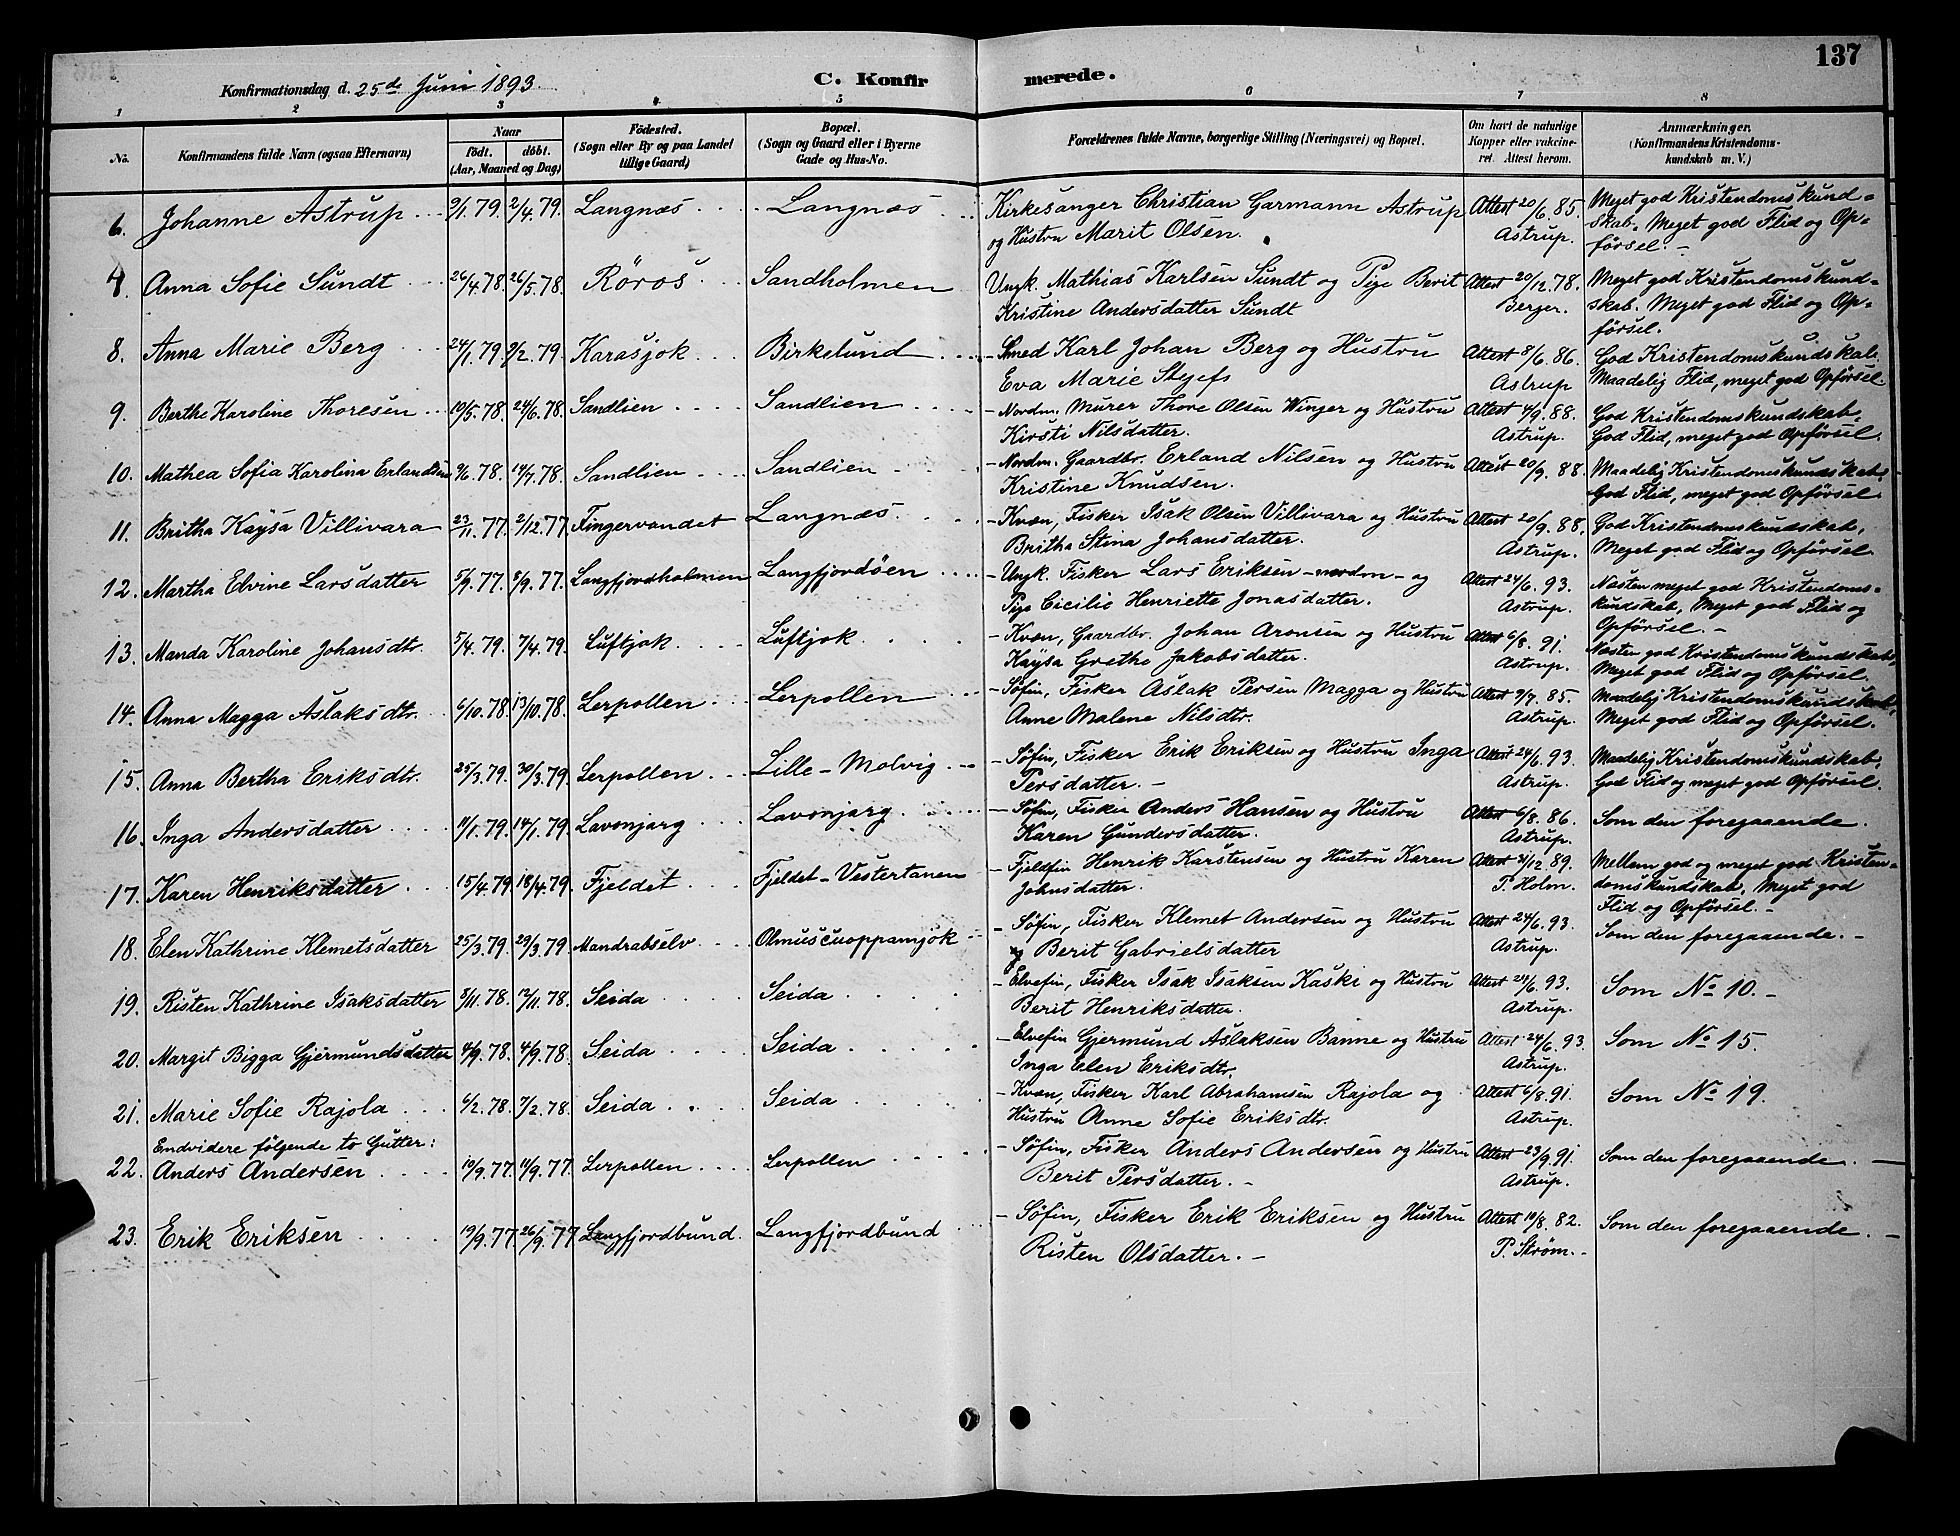 137
Konfirmationsdag d. 25de Juni 1893. C. Konfirmerede.
1 2 3 4 5 6 7 8
No. Konfirmandens fulde Navn (ogsaa Efternavn) Naar født. døbt. (Aar, Maaned og Dag) Fødested. (Sogn eller By og paa Landet tillige Gaard) Bopæl. (Sogn og Gaard eller i Byerne Gade og Hus-No. Forældrenes fulde Navne, borgerlige Stilling (Næringsvei) og Bopæl. Om havt de naturlige Kopper eller vakcineret. Attest herom. Anmærkninger. (Konfirmandens Kristendomskundskab m. V.)
6. Johanne Astrup 2/1.79. 2/4.79. Langnæs Langnæs Kirkesanger Christian Garmann Astrup Attest 20/6.85. Meget god Kristendomskund-
og Hustru Marit Olsen. Astrup. skab. Meget god Flid og Op-
førsel. -
7. Anna Sofie Sundt 26/4.78. 26/5.78. Röros Sandholmen Ungk. Mathias Karlsen Sundt og Pige Berit Attest 20/12.78. Meget god Kristendomskund-
Kristine Andersdatter Sundt Berger. skab. Meget god Flid og Op-
førsel.
8. Anna Marie Berg 24/1.79. 9/2.79. Karasjok Birkelund - Smed Karl Johan Berg og Hustru Attest 8/6.86. God Kristendomskundskab.
Eva Marie Astrup Maadelig Flid, meget god Opførsel.
9. Berthe Karoline Thoresen 10/5.78. 24/6.78. Sandlien Sandlien - Nordm. Murer Thore Olsen Winger og Hustru Attest 4/9.88. God Kristendomskundskab,
Kirsti Nilsdatter. Astrup. God Flid, meget god Opførsel.
10. Mathea Sofia Karolina Erlandsen 9/6.78. 14/7.78. Sandlien Sandlien - Nordm. Gaardbr. Erland Nilsen og Hustru Attest 20/9.88. Maadelig Kristendomskundskab,
Kristine Knudsen. God Flid, meget god Opførsel.
11. Britha Kaysa Villivara 23/11.77. 2/12.77. Fingervandet Langnæs - Kvæn, Fisker Isak Olsen Villivara og Hustru Attest 20/9.88. God Kristendomskundskab,
Britha Stina Johansdatter. Astrup. Meget god Flid og Opførsel.
12. Martha Elvine Larsdatter 5/9.77. 8/9.77. Langfjordholmen Langfjordøen - Ungk. Fisker Lars Eriksen - nordm - og Attest 24/6.93. Næsten meget god Kristendoms-
Pige Cicilie Henriette Jonasdatter. Astrup. kundskab, Meget god Flid og
Opførsel. -
13. Manda Karoline Johansdtr. 5/4.79. 7/4.79. Luftjok Luftjok - Kvæn, Gaardbr. Johan Aronsen og Hustru Attest 6/8.91. Næsten god Kristendomskundskab,
Kaysa Grethe Jakobsdatter. Astrup. Meget god Flid og Opførsel.
14. Anna Magga Aslaksdtr. 6/10.78. 13/10.78. Lerpollen Lerpollen - Søfin, Fisker Aslak Persen Magga og Hustru Attest 9/7.85. Maadelig Kristendomskundskab,
Anne Malene Nilsdtr. Astrup. Meget god Flid og Opførsel.
15. Anna Bertha Eriksdtr. 25/3.79. 30/3.79. Lerpollen Lille-Molvig - Søfin, Fisker Erik Eriksen og Hustru Inga Attest 24/6.93. Maadelig Kristendomskundskab,
Persdatter. - Astrup. God Flid og meget god Opførsel.
16. Inga Andersdatter 11/1.79. 14/1.79. Lavonjarg Lavonjarg - Søfin, Fisker Anders Hansen og Hustru Attest 6/8.86. Som den foregaaende.
Karen Gundersdatter. Astrup.
17. Karen Henriksdatter 15/4.79. 18/4.79. Fjeldet Fjeldet-Vestertanen - Fjeldfin Henrik Karstensen og Hustru Karen Attest 31/12.89. Mellem god og meget god Kristen-
Johnsdatter. P. Holm. domskundskab, Meget god
Flid og Opførsel. -
18. Elen Kathrine Klemetsdatter 25/3.79. 29/3.79. Mandrabselv Olmuscuoppamjok - Søfin, Fisker Klemet Andersen og Hustru Attest 24/6.93. Som den foregaaende. -
Berit Gabrielsdatter Astrup.
19. Risten Kathrine Isaksdatter 8/11.78. 12/11.78. Seida Seida - Elvefin, Fisker Isak Isaksen Kaski og Hustru Attest 24/6.93. Som No 10. -
Berit Henriksdatter. Astrup.
20. Margit Bigga Gjermundsdatter 4/9.78. 4/9.78. Seida Seida - Elvefin Gjermund Aslaksen Banne og Hustru Attest 24/6.93. Som No 15.
Inga Elen Eriksdtr. Astrup.
21. Marie Sofie Rajola 6/2.78. 7/2.78. Seida Seida - Kvæn, Fisker Karl Abrahamsen Rajola og Attest 6/8.91. Som No 19.
Hustru Anne Sofie Eriksdtr. Astrup.
Endvidere følgende to Gutter:
22. Anders Andersen 10/9.77. 11/9.77. Lerpollen Lerpollen - Søfin, Fisker Anders Andersen og Hustru Attest 23/9.91. Som den foregaaende. -
Berit Persdatter. - Astrup.
23. Erik Eriksen 19/9.77. 26/9.77 Langfjordbund. Langfjordbund - Søfin, Fisker Erik Eriksen og Hustru Attest 10/8.82. Som den foregaaende. -
Risten Olsdatter. - P. Strøm. -